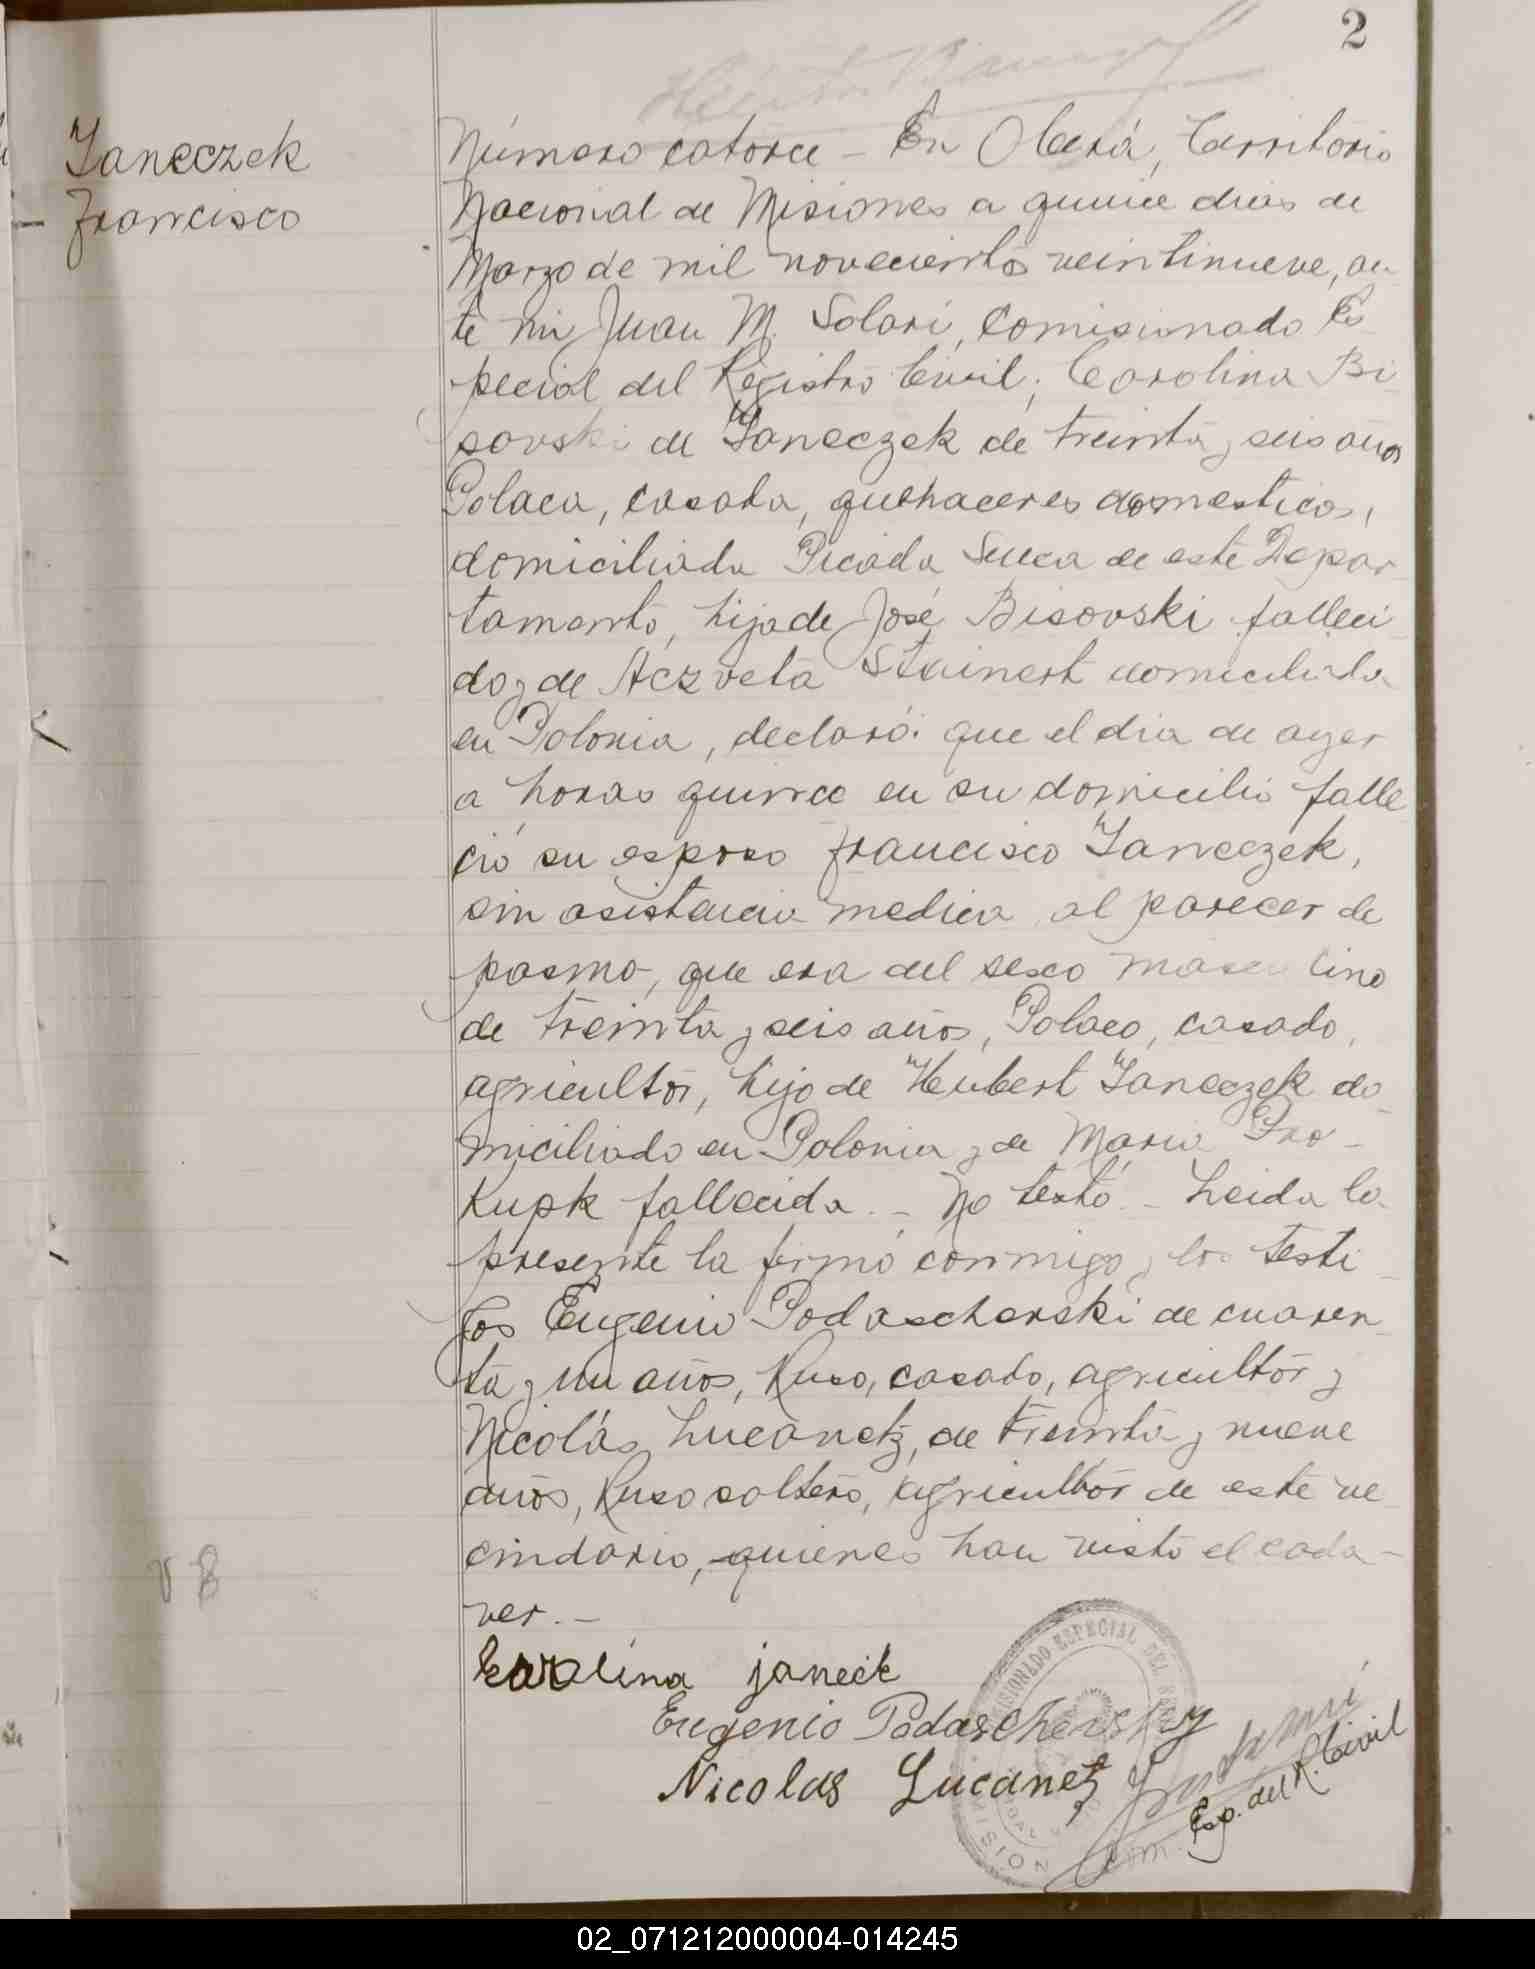 2
Janeczek
Francisco
Número catorce - En Oberá, Territorio
Nacional de Misiones a quince dias de
Marzo de mil novecientos veintinueve, an-
te mi Juan M. Solari, Comisionado Es
pecial del Registro Civil, Carolina Bi
sovski de Janeczek de treinta y seis años
Polaca, casada, quehaceres domesticos,
domiciliada Picada Sueca de este Depar
tamento, hija de José Bisovski falleci
do y de Aczveta Stainert domiciliada
en Polonia, declaró: que el dia de ayer
a horas quince en su domicilio falle
ció su esposo Francisco Janeczek,
sin asistencia medica al parecer de
pasmo, que era del sexo masculino
de treinta y seis años, Polaco, casado,
agricultor, hijo de Hubert Janeczek do
miciliado en Polonia y de Maria Pro-
Kupk fallecida. - No testó. - Leida la
presente la firmó conmigo y los testi
gos Eugenio Podascherski de cuaren
ta y un años, Ruso, casado, agricultor y
Nicolás Lucanetz, de treinta y nueve
años, Ruso soltero, agricultor de este ve
cindario, quienes han visto el cada-
ver. -
Karolina janeck
Eugenio Podaschersky
Nicolas Lucanetz
Esp. del R. Civil
COMISIONADO ESPECIAL DEL
MISIONES
V B
02_071212000004-014245